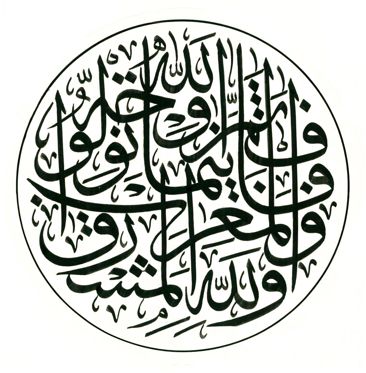 وَلِلَّهِ الْمَشْرِقُ وَالْمَغْرِبُ فَأَيْنَمَا تُوَلُّوا فَثَمَّ وَجْهُ اللَّهِ